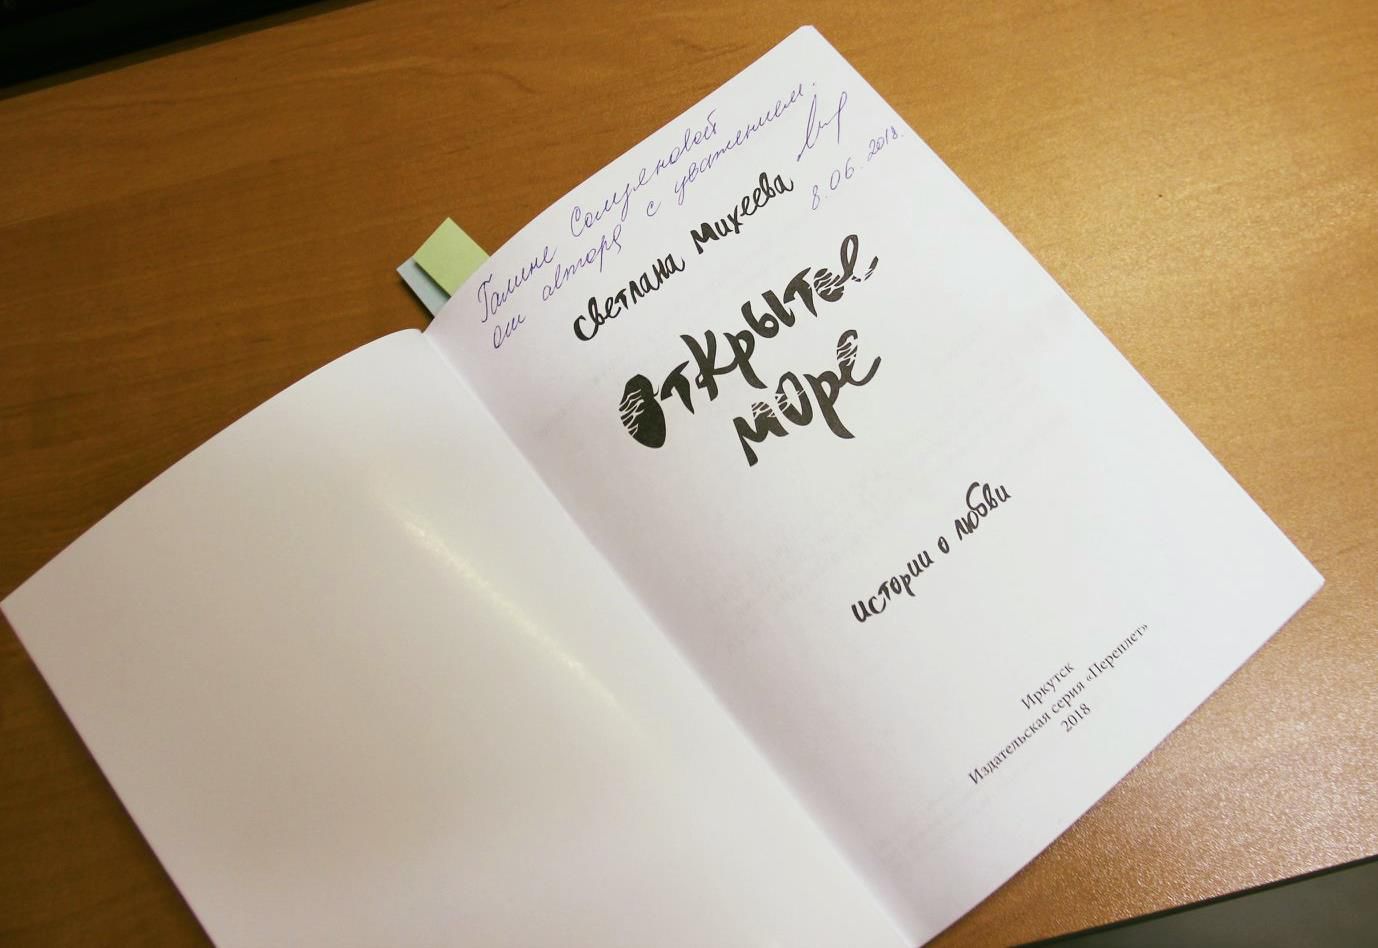 Галине Солуяновой
от автора с уважением.
8.06.2018.
Светлана Михеева
Открытое
море
истории о любви
Иркутск
Издательская серия «Переплет»
2018